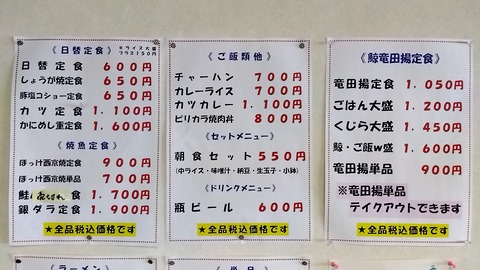 《日替定食》
※ライス大盛
プラス150円
日替定食 600円
しょうが焼定食 650円
豚塩コショー定食 650円
カツ定食 1,100円
かにめし重定食 1,600円
《焼魚定食》
ほっけ西京焼定食 900円
ほっけ西京焼単品 700円
鮭 定食 1,700円
銀ダラ定食 1,900円
★全品税込価格です
ラーメン
《ご飯類他》
チャーハン 700円
カレーライス 700円
カツカレー 1,100円
ピリカラ焼肉丼 800円
《セットメニュー》
朝食セット 550円
(中ライス・味噌汁・納豆・生玉子・小鉢)
《ドリンクメニュー》
瓶ビール 600円
★全品税込価格です
単品
《鯨竜田揚定食》
竜田揚定食 1,050円
ごはん大盛 1,200円
くじら大盛 1,450円
鯨・ご飯w盛 1,600円
竜田揚単品 900円
※竜田揚単品
テイクアウトできます
★全品税込価格です